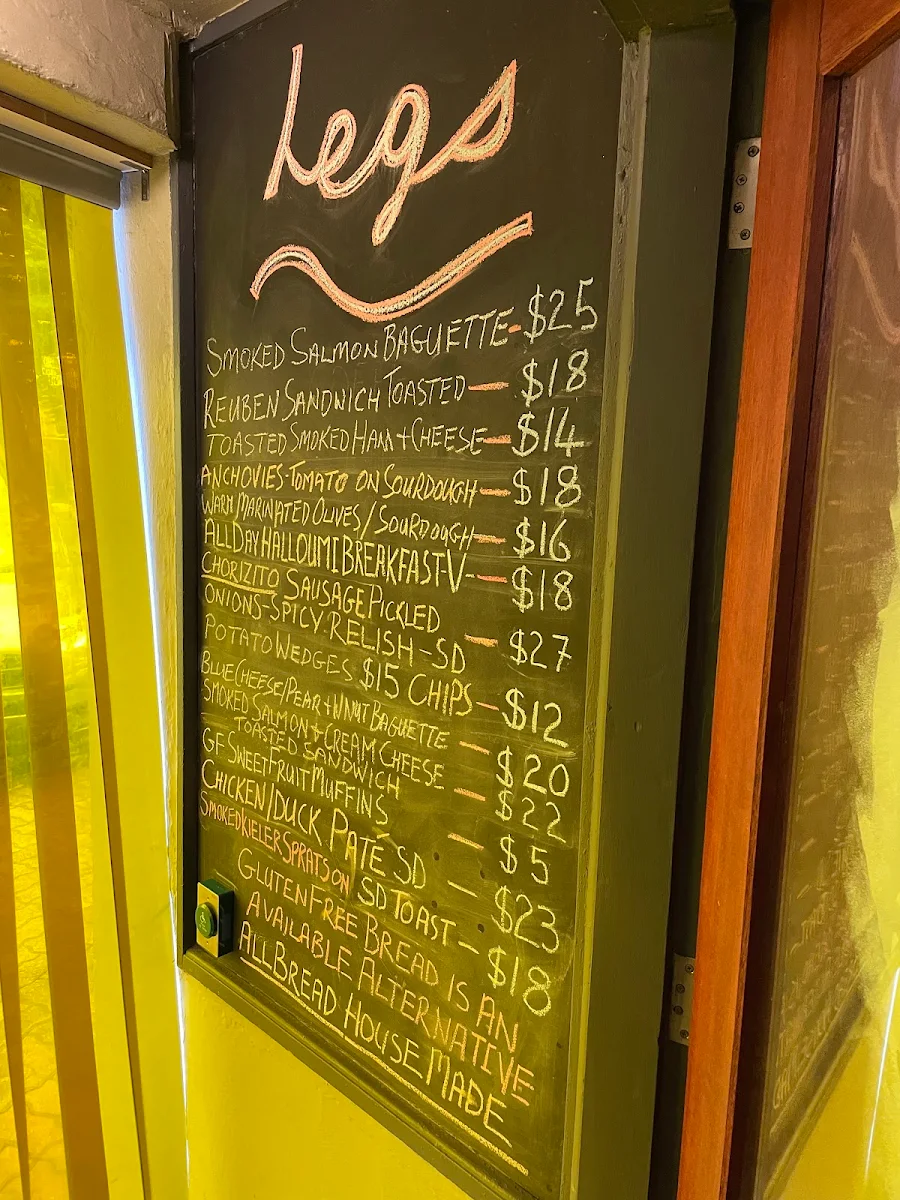 Legs
SMOKED SALMON BAGUETTE - $25
REUBEN SANDWICH TOASTED - $18
TOASTED SMOKED HAM + CHEESE - $14
ANCHOVIES - TOMATO ON SOURDOUGH - $18
WARM MARINATED OLIVES / SOURDOUGH - $16
ALL DAY HALLOUMI BREAKFAST - V - $18
CHORIZITO SAUSAGE PICKLED
ONIONS - SPICY RELISH - SD - $27
POTATO WEDGES $15 CHIPS - $12
BLUE CHEESE / PEAR + WNUT BAGUETTE - $20
SMOKED SALMON + CREAM CHEESE
TOASTED SANDWICH - $22
GF SWEET FRUIT MUFFINS - $5
CHICKEN / DUCK PATÉ SD - $23
SMOKED KIELER SPRATS ON SD TOAST - $18
GLUTEN FREE BREAD IS AN
AVAILABLE ALTERNATIVE
ALL BREAD HOUSE MADE